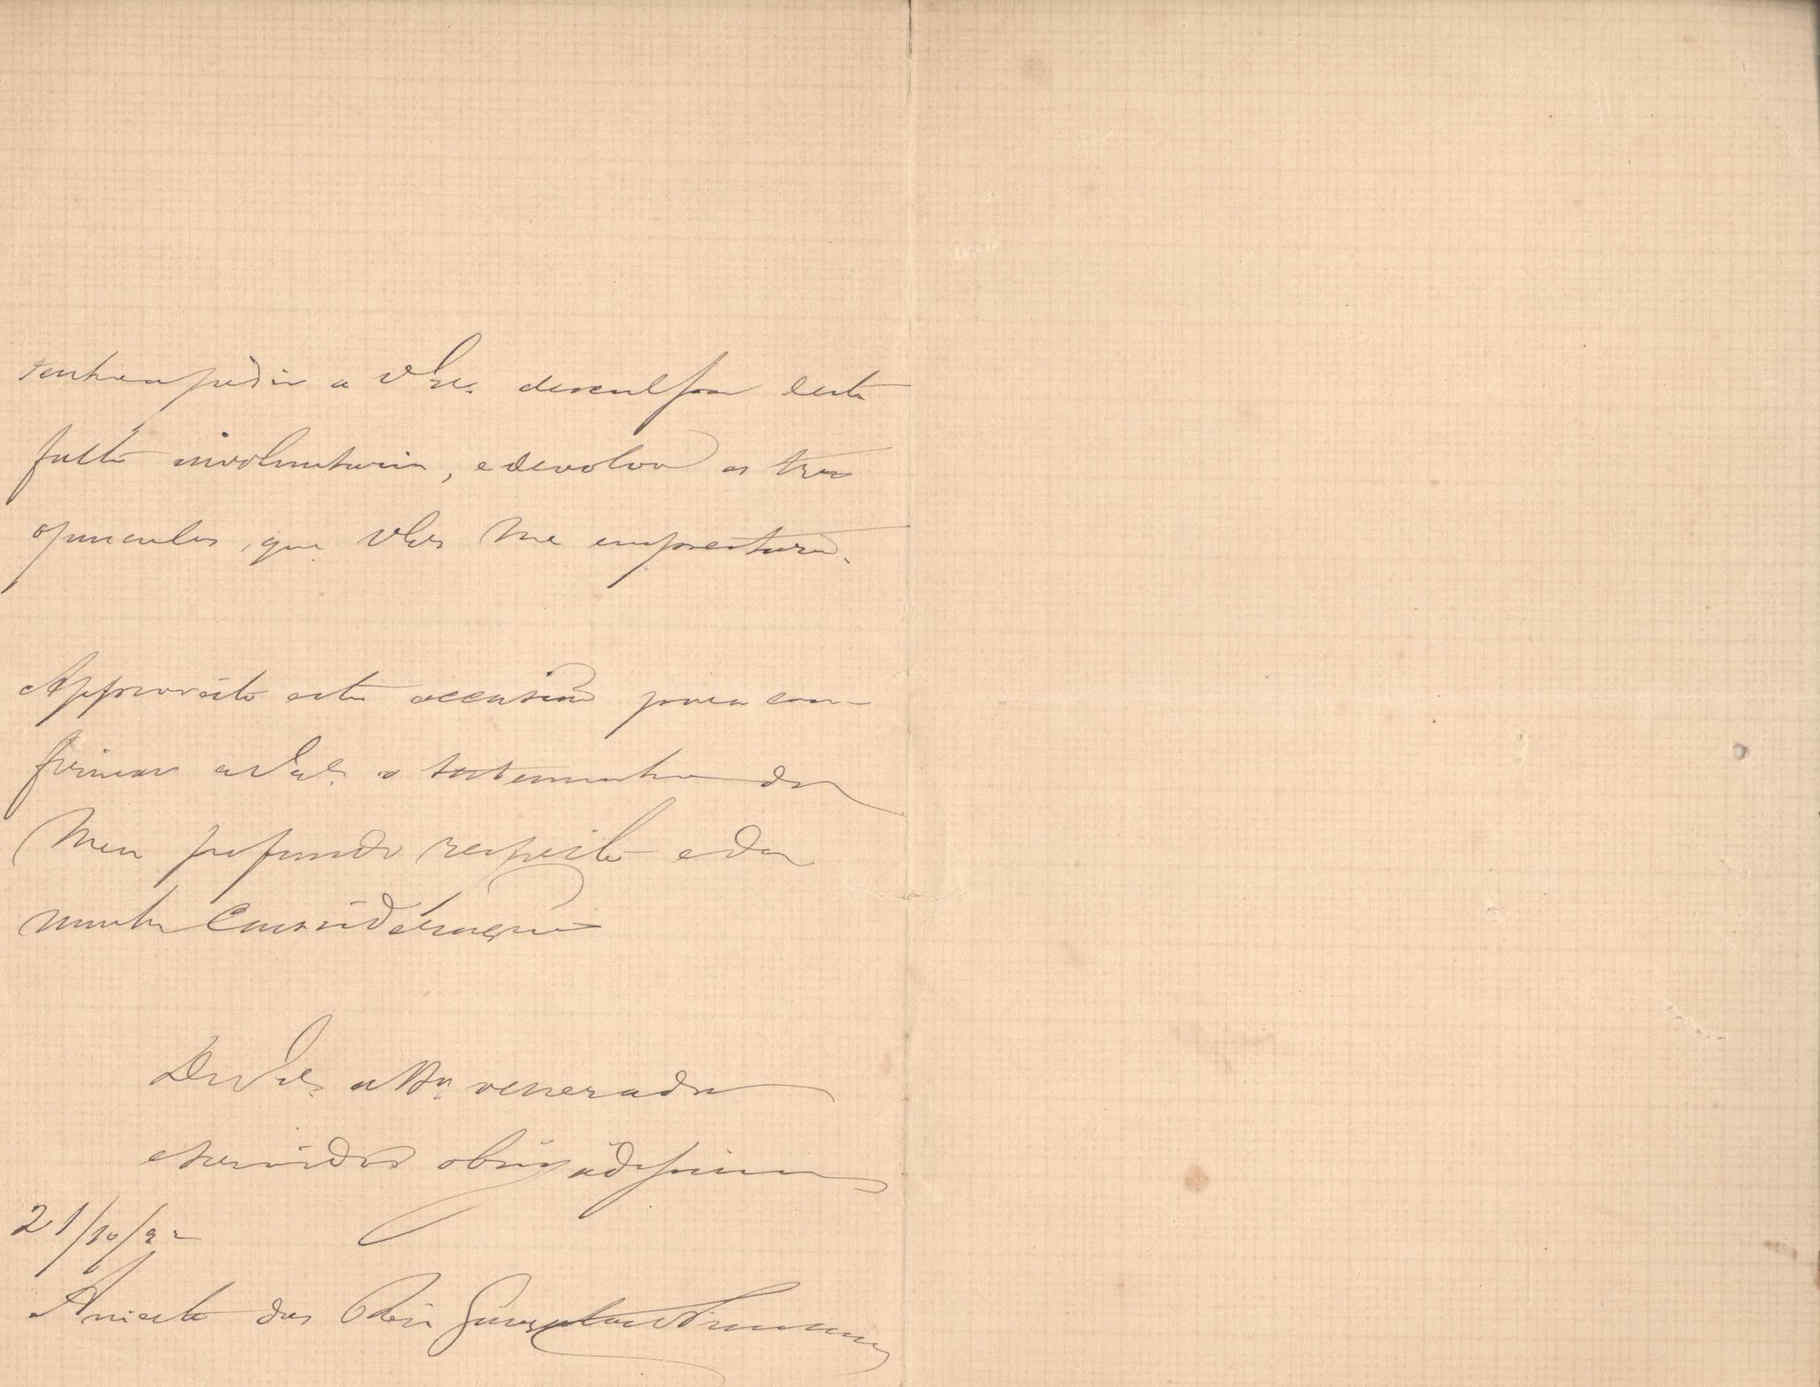 tenho a pedir a V Ex.ª desculpa desta
falta involuntaria, e devolvo os tres
opusculos, que V Ex.ª me emprestara.
Approveito esta occasião para con-
firmar a V Ex.ª o testemunho do
Meu profundo respeito e da
minha Consideração
De V Ex.ª att.º venerador
e servidor obrigadissimo
21/10/92
Aniceto dos Reis Gonçalves